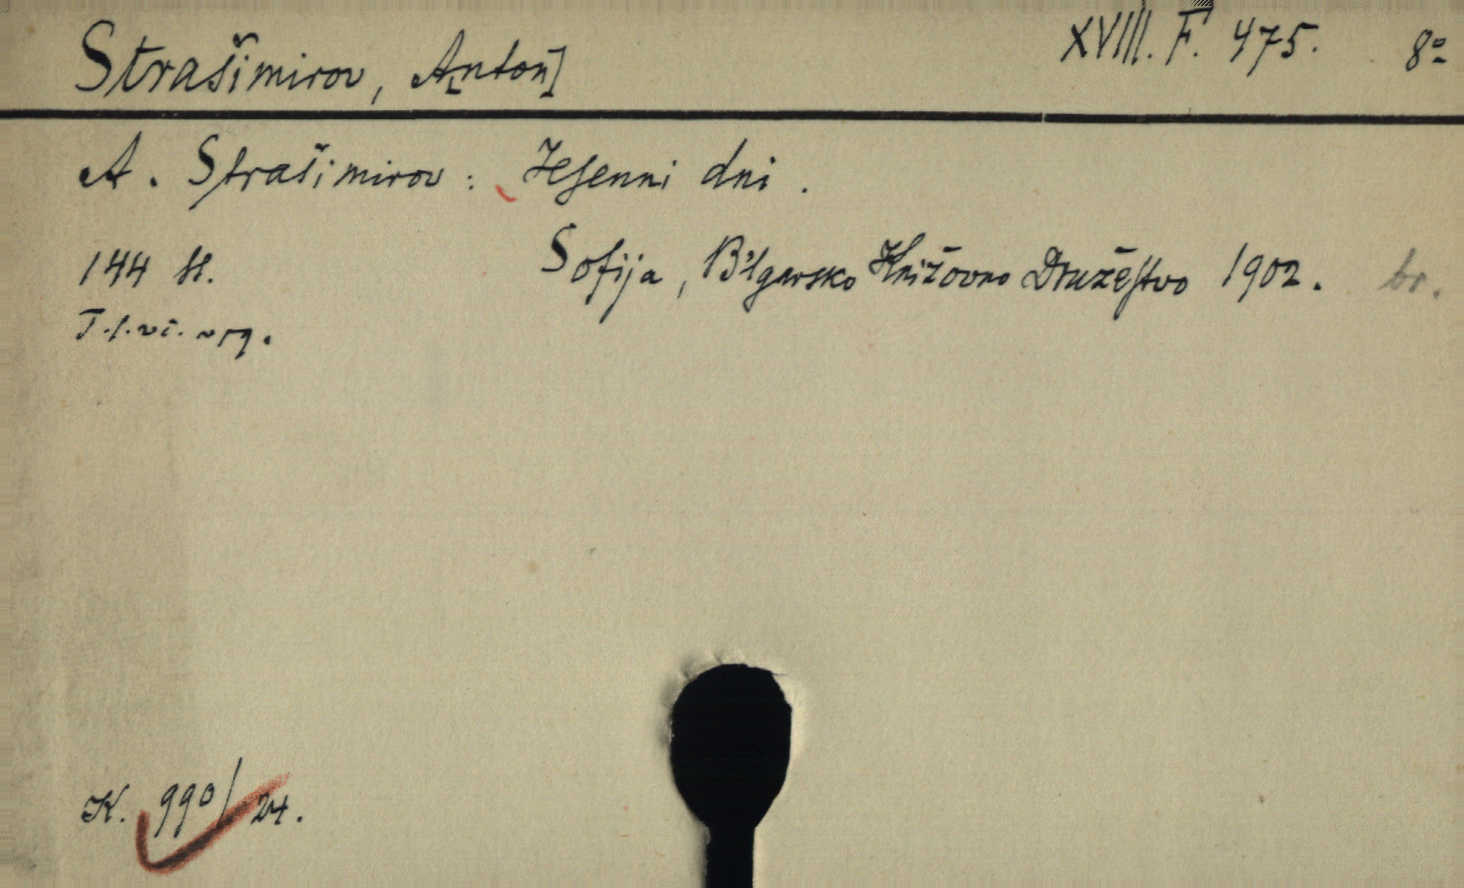 Strašimirov, A[nton] XVIII. F. 475. 8º
A. Strašimirov: Jesenni dni.
144 st. Sofija, B'lgarsko Knižovno Družestvo 1902. br.
K. 990/24.